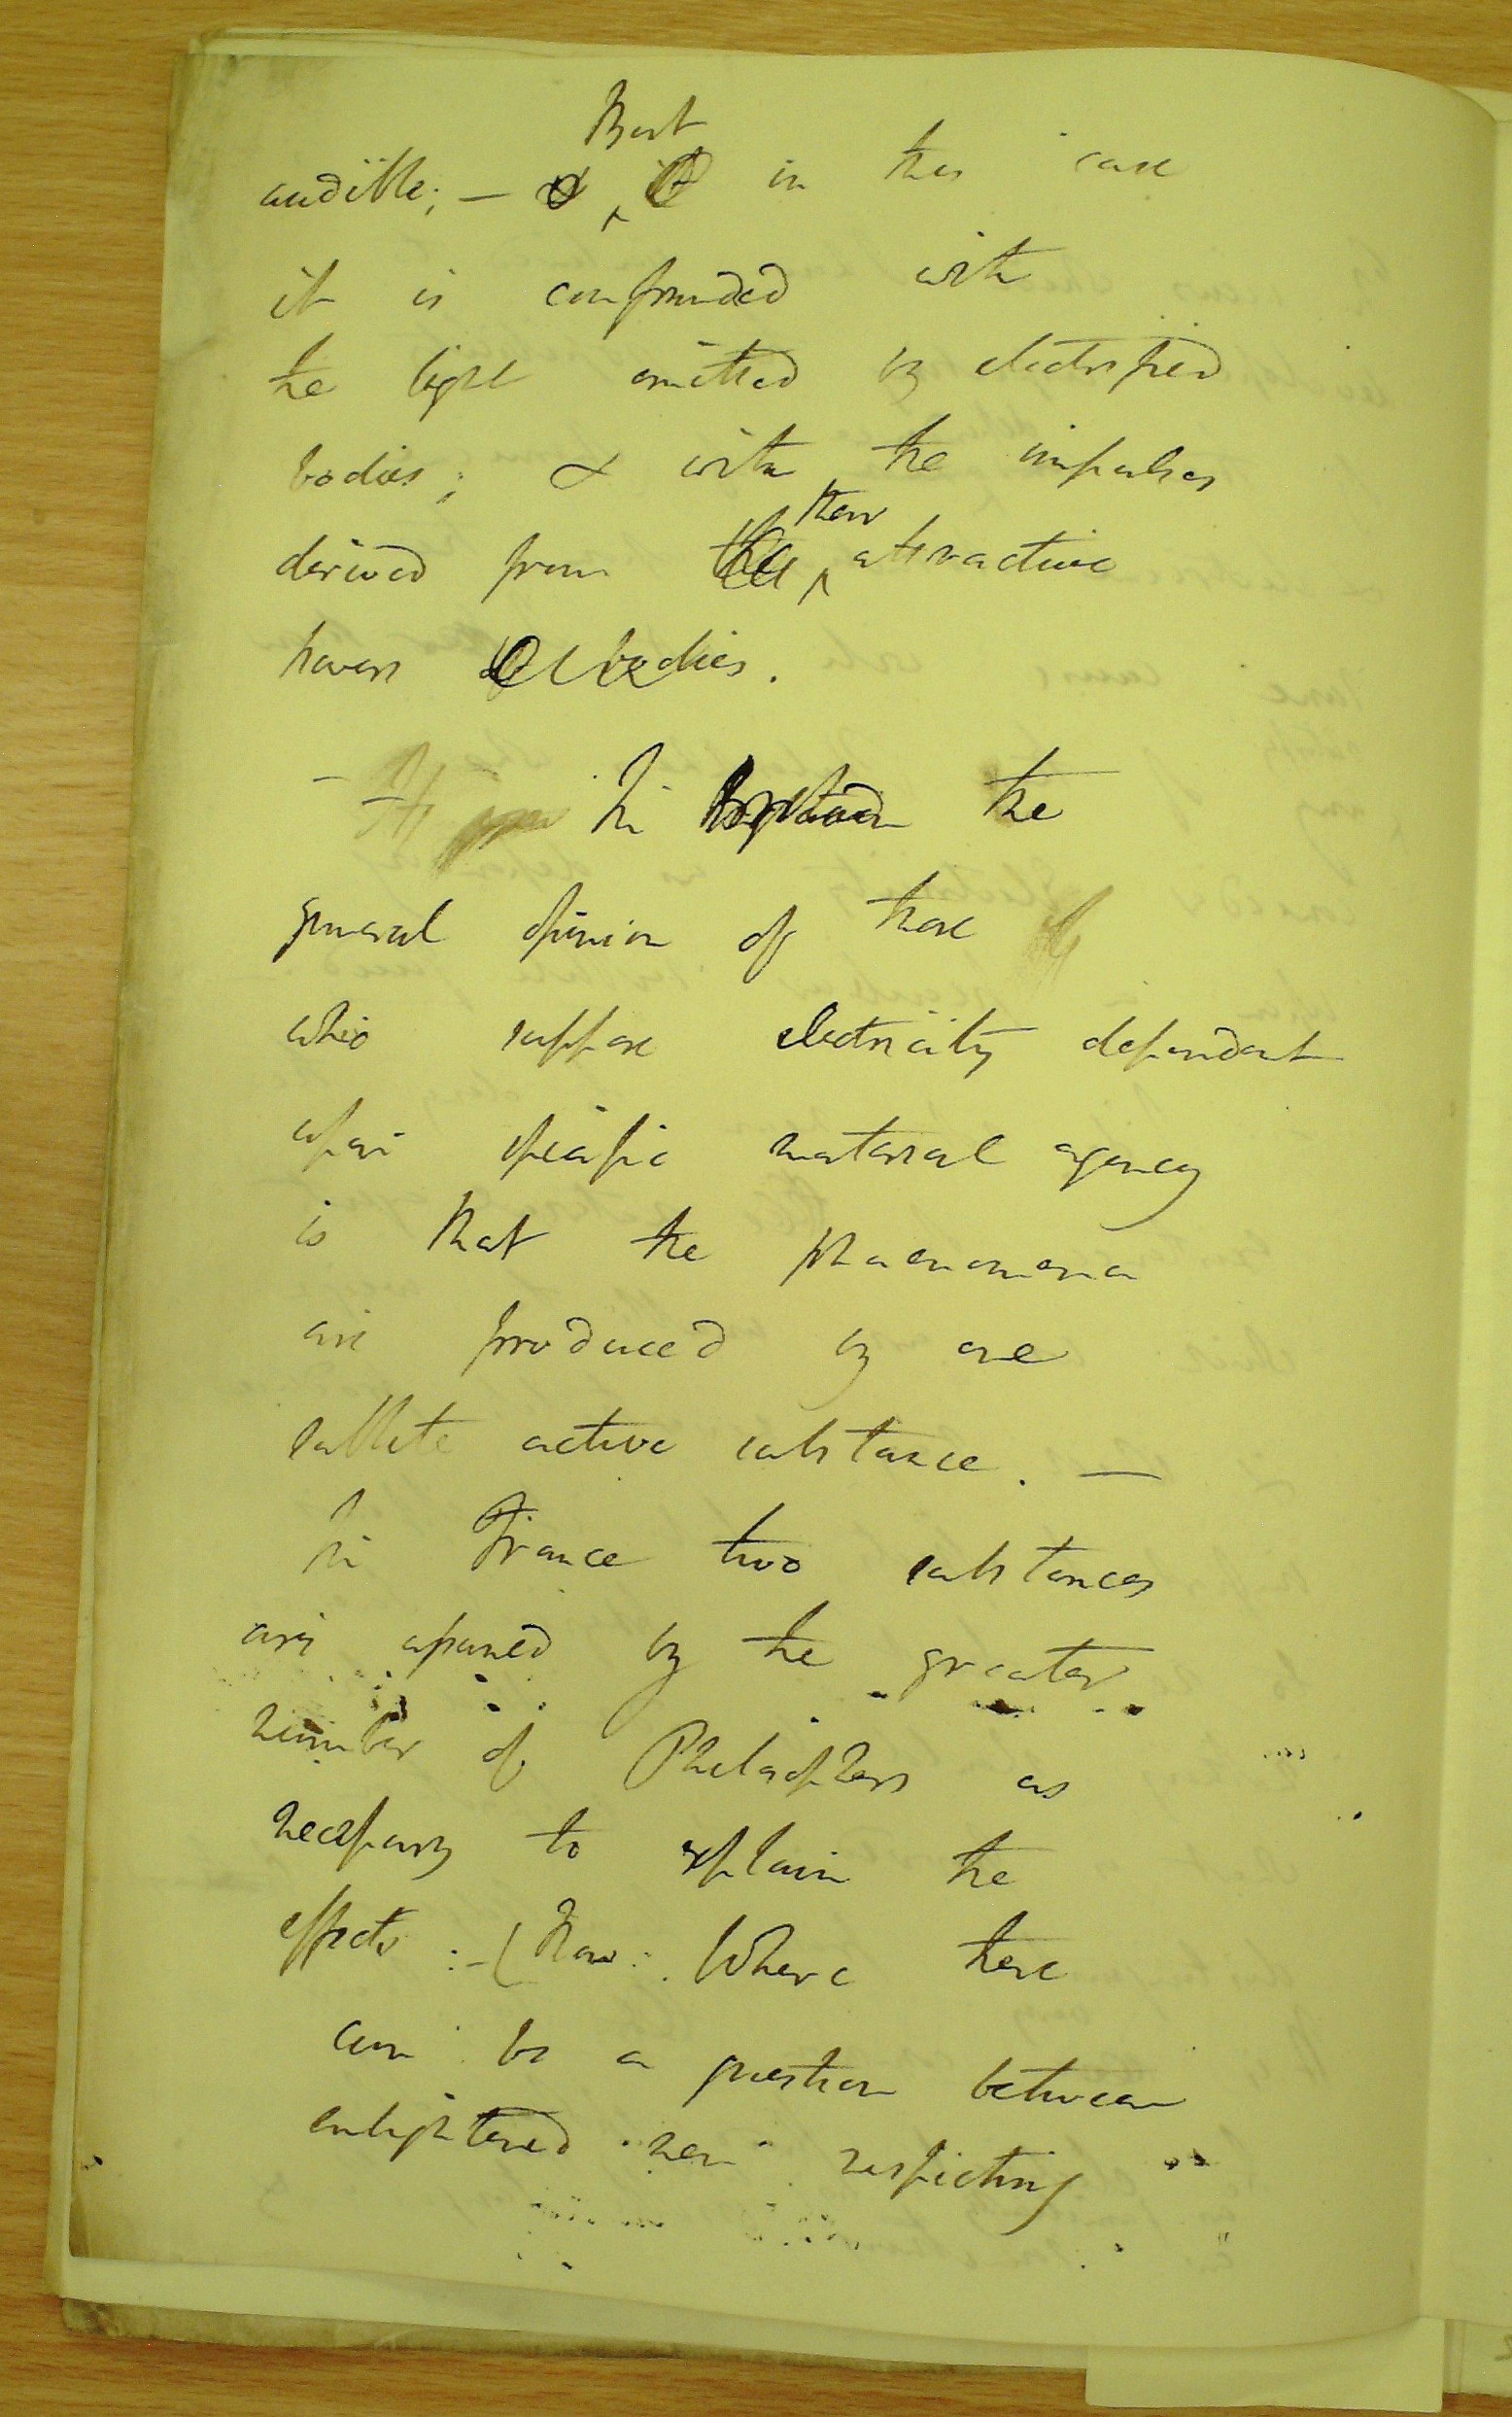 But
audible; – & in this case
it is confounded with
the light emitted by electrified
bodies; & with the impulses
their
derived from the ^ attractive
powers of bodies.
– In the
general opinion of those
who suppose electricity dependant
upon specific material agency
is that the phaenomena
are produced by one
subtle active substance. —
In France two substances
are assumed by the greater
number of Philosophers as
necessary to explain the
effects :–( Now: Where there
can be a question between
enlightened men respecting